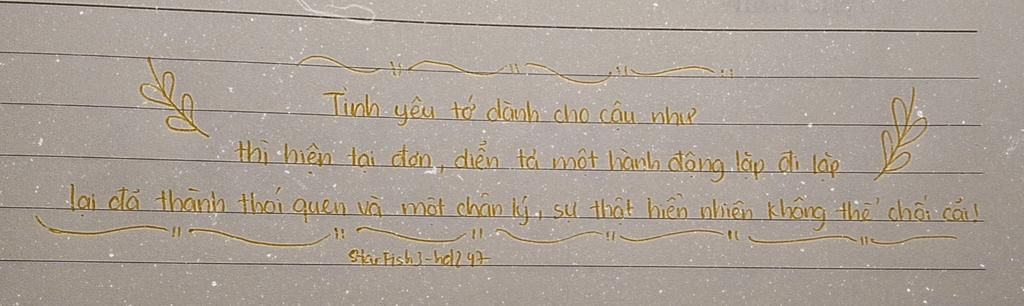 Tình yêu tớ dành cho cậu như
thì hiện tại đơn, diễn tả một hành động lặp đi lặp
lại đã thành thói quen và một chân lý, sự thật hiển nhiên không thể chối cãi!